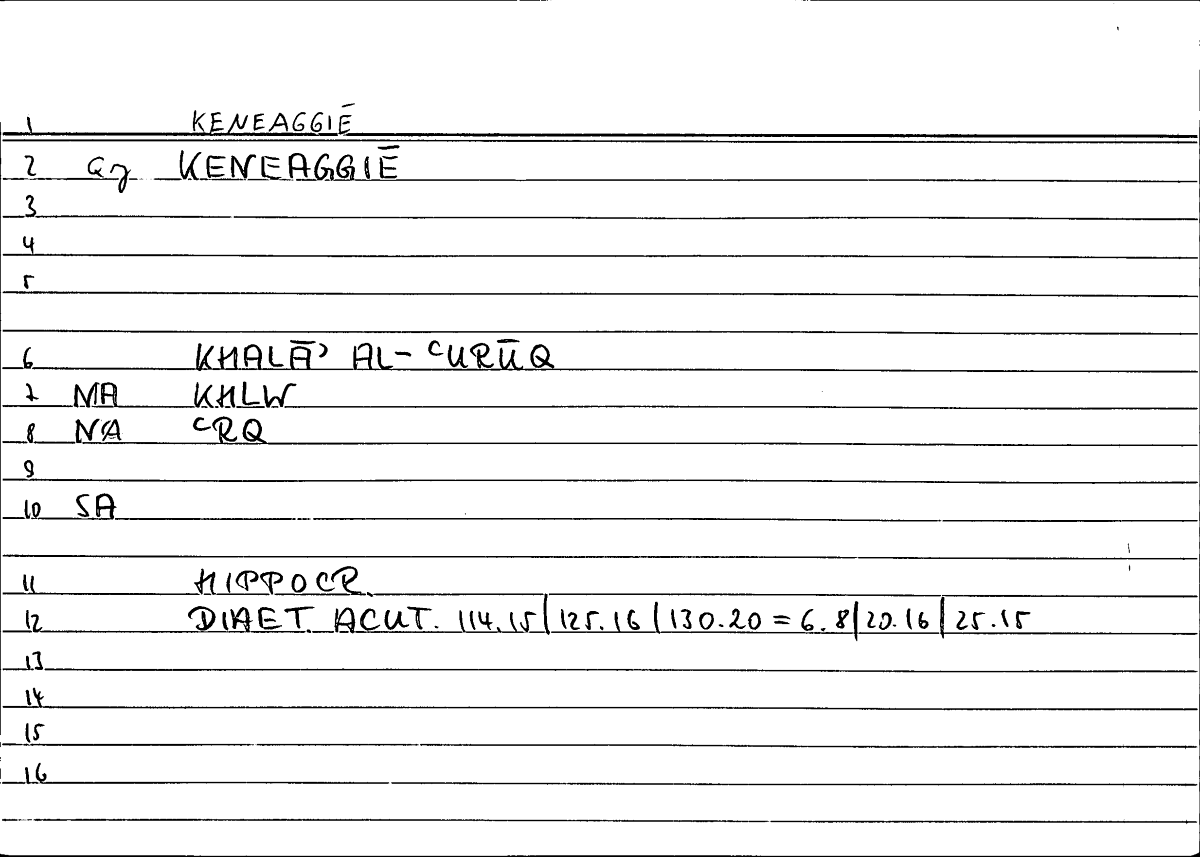 1 KENEAGGIĒ
2 Gη KENEAGGIĒ
3
4
5
6 KHALĀʾ AL-ʿURŪQ
7 MA KHLW
8 NA ʿRQ
9
10 SA
11 HIPPOCR.
12 DIAET. ACUT. 114.15|125.16|130.20=6.8|20.16|25.15
13
14
15
16